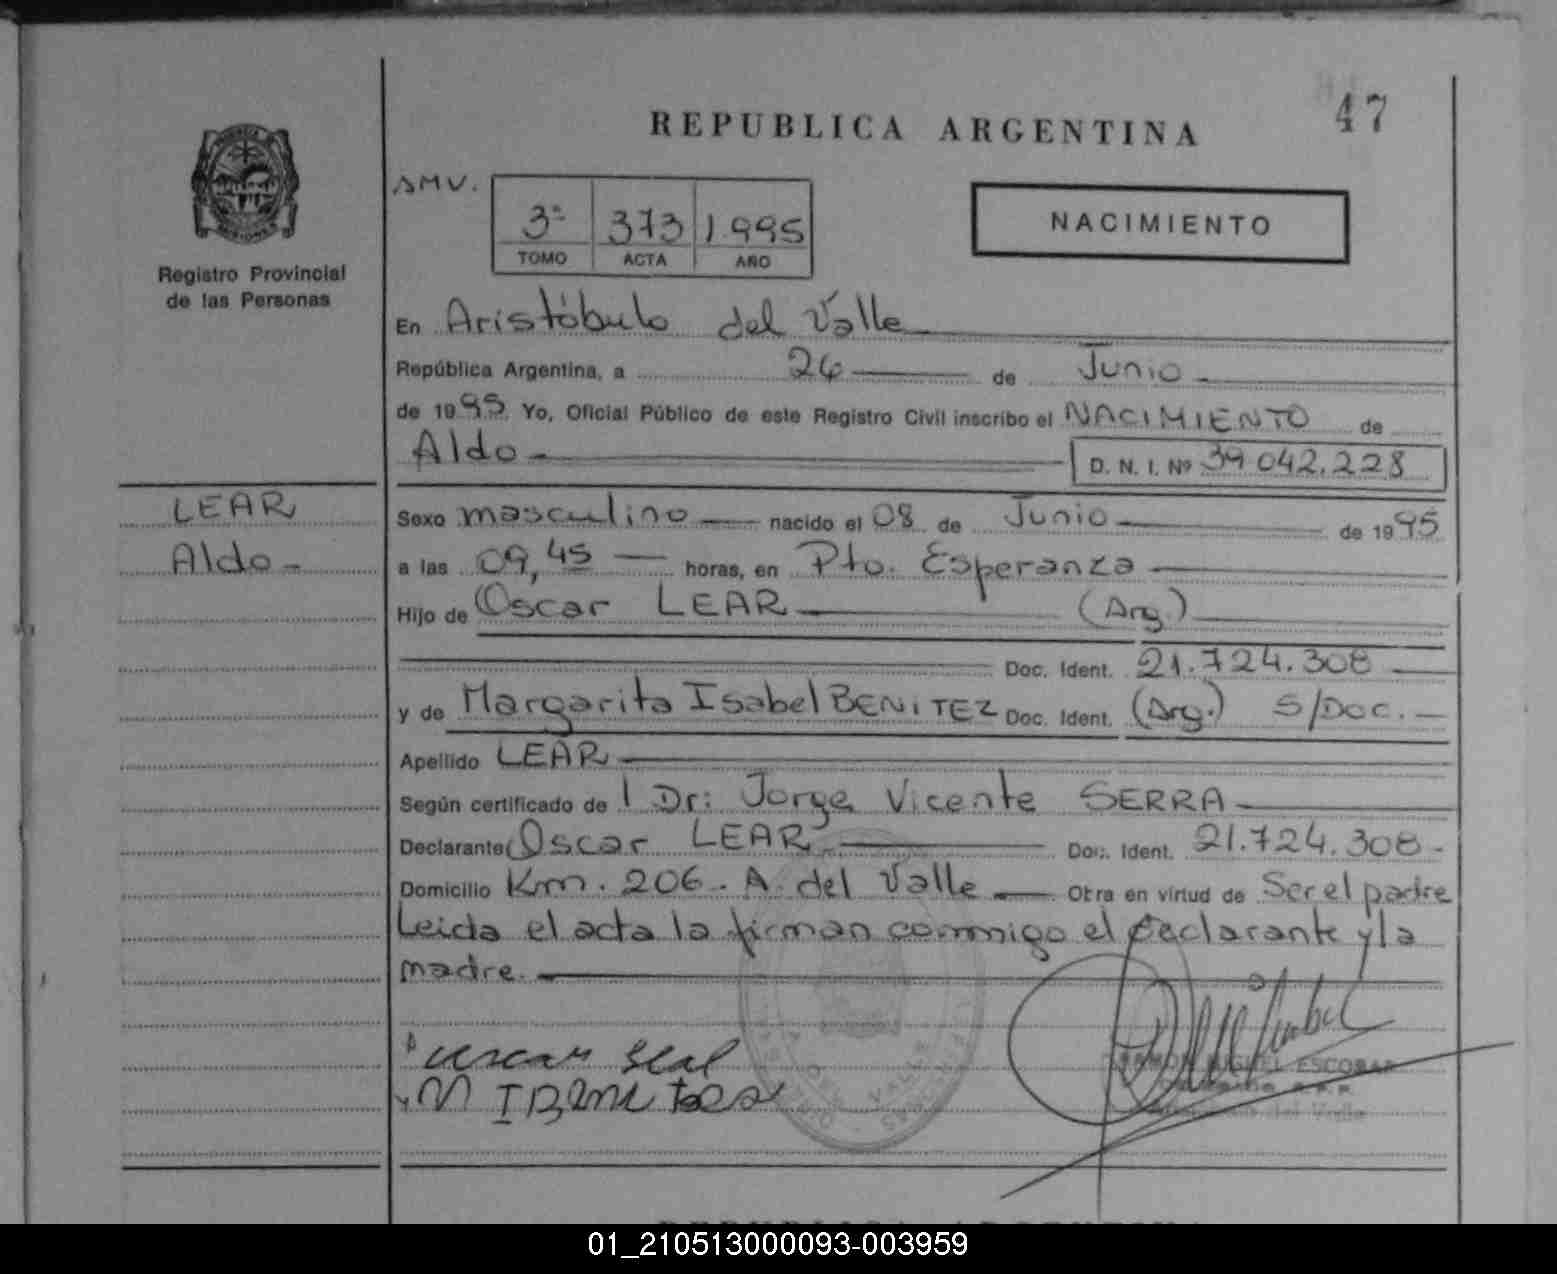 47
REPUBLICA ARGENTINA
AMV.
3º 373 1.995
TOMO ACTA AÑO
NACIMIENTO
Registro Provincial
de las Personas
En Aristóbulo del Valle
República Argentina, a 26 de Junio
de 1995 Yo, Oficial Público de este Registro Civil inscribo el NACIMIENTO de
Aldo D. N. I. Nº 39.042.228
LEAR
Aldo
Sexo masculino nacido el 08 de Junio de 1995
a las 09,45 horas, en Pto. Esperanza
Hijo de Oscar LEAR (Arg.)
Doc. Ident. 21.724.308
y de Margarita Isabel BENITEZ Doc. Ident. (Arg.) S/Doc.
Apellido LEAR
Según certificado de l Dr: Jorge Vicente SERRA
Declarante Oscar LEAR Doc. Ident. 21.724.308
Domicilio Km. 206. A. del Valle Otra en virtud de Ser el padre
Leida el acta la firman conmigo el declarante y la
madre.
RAMON MIGUEL ESCOBAR
del Valle
REPUBLICA ARGENTINA
01_210513000093-003959